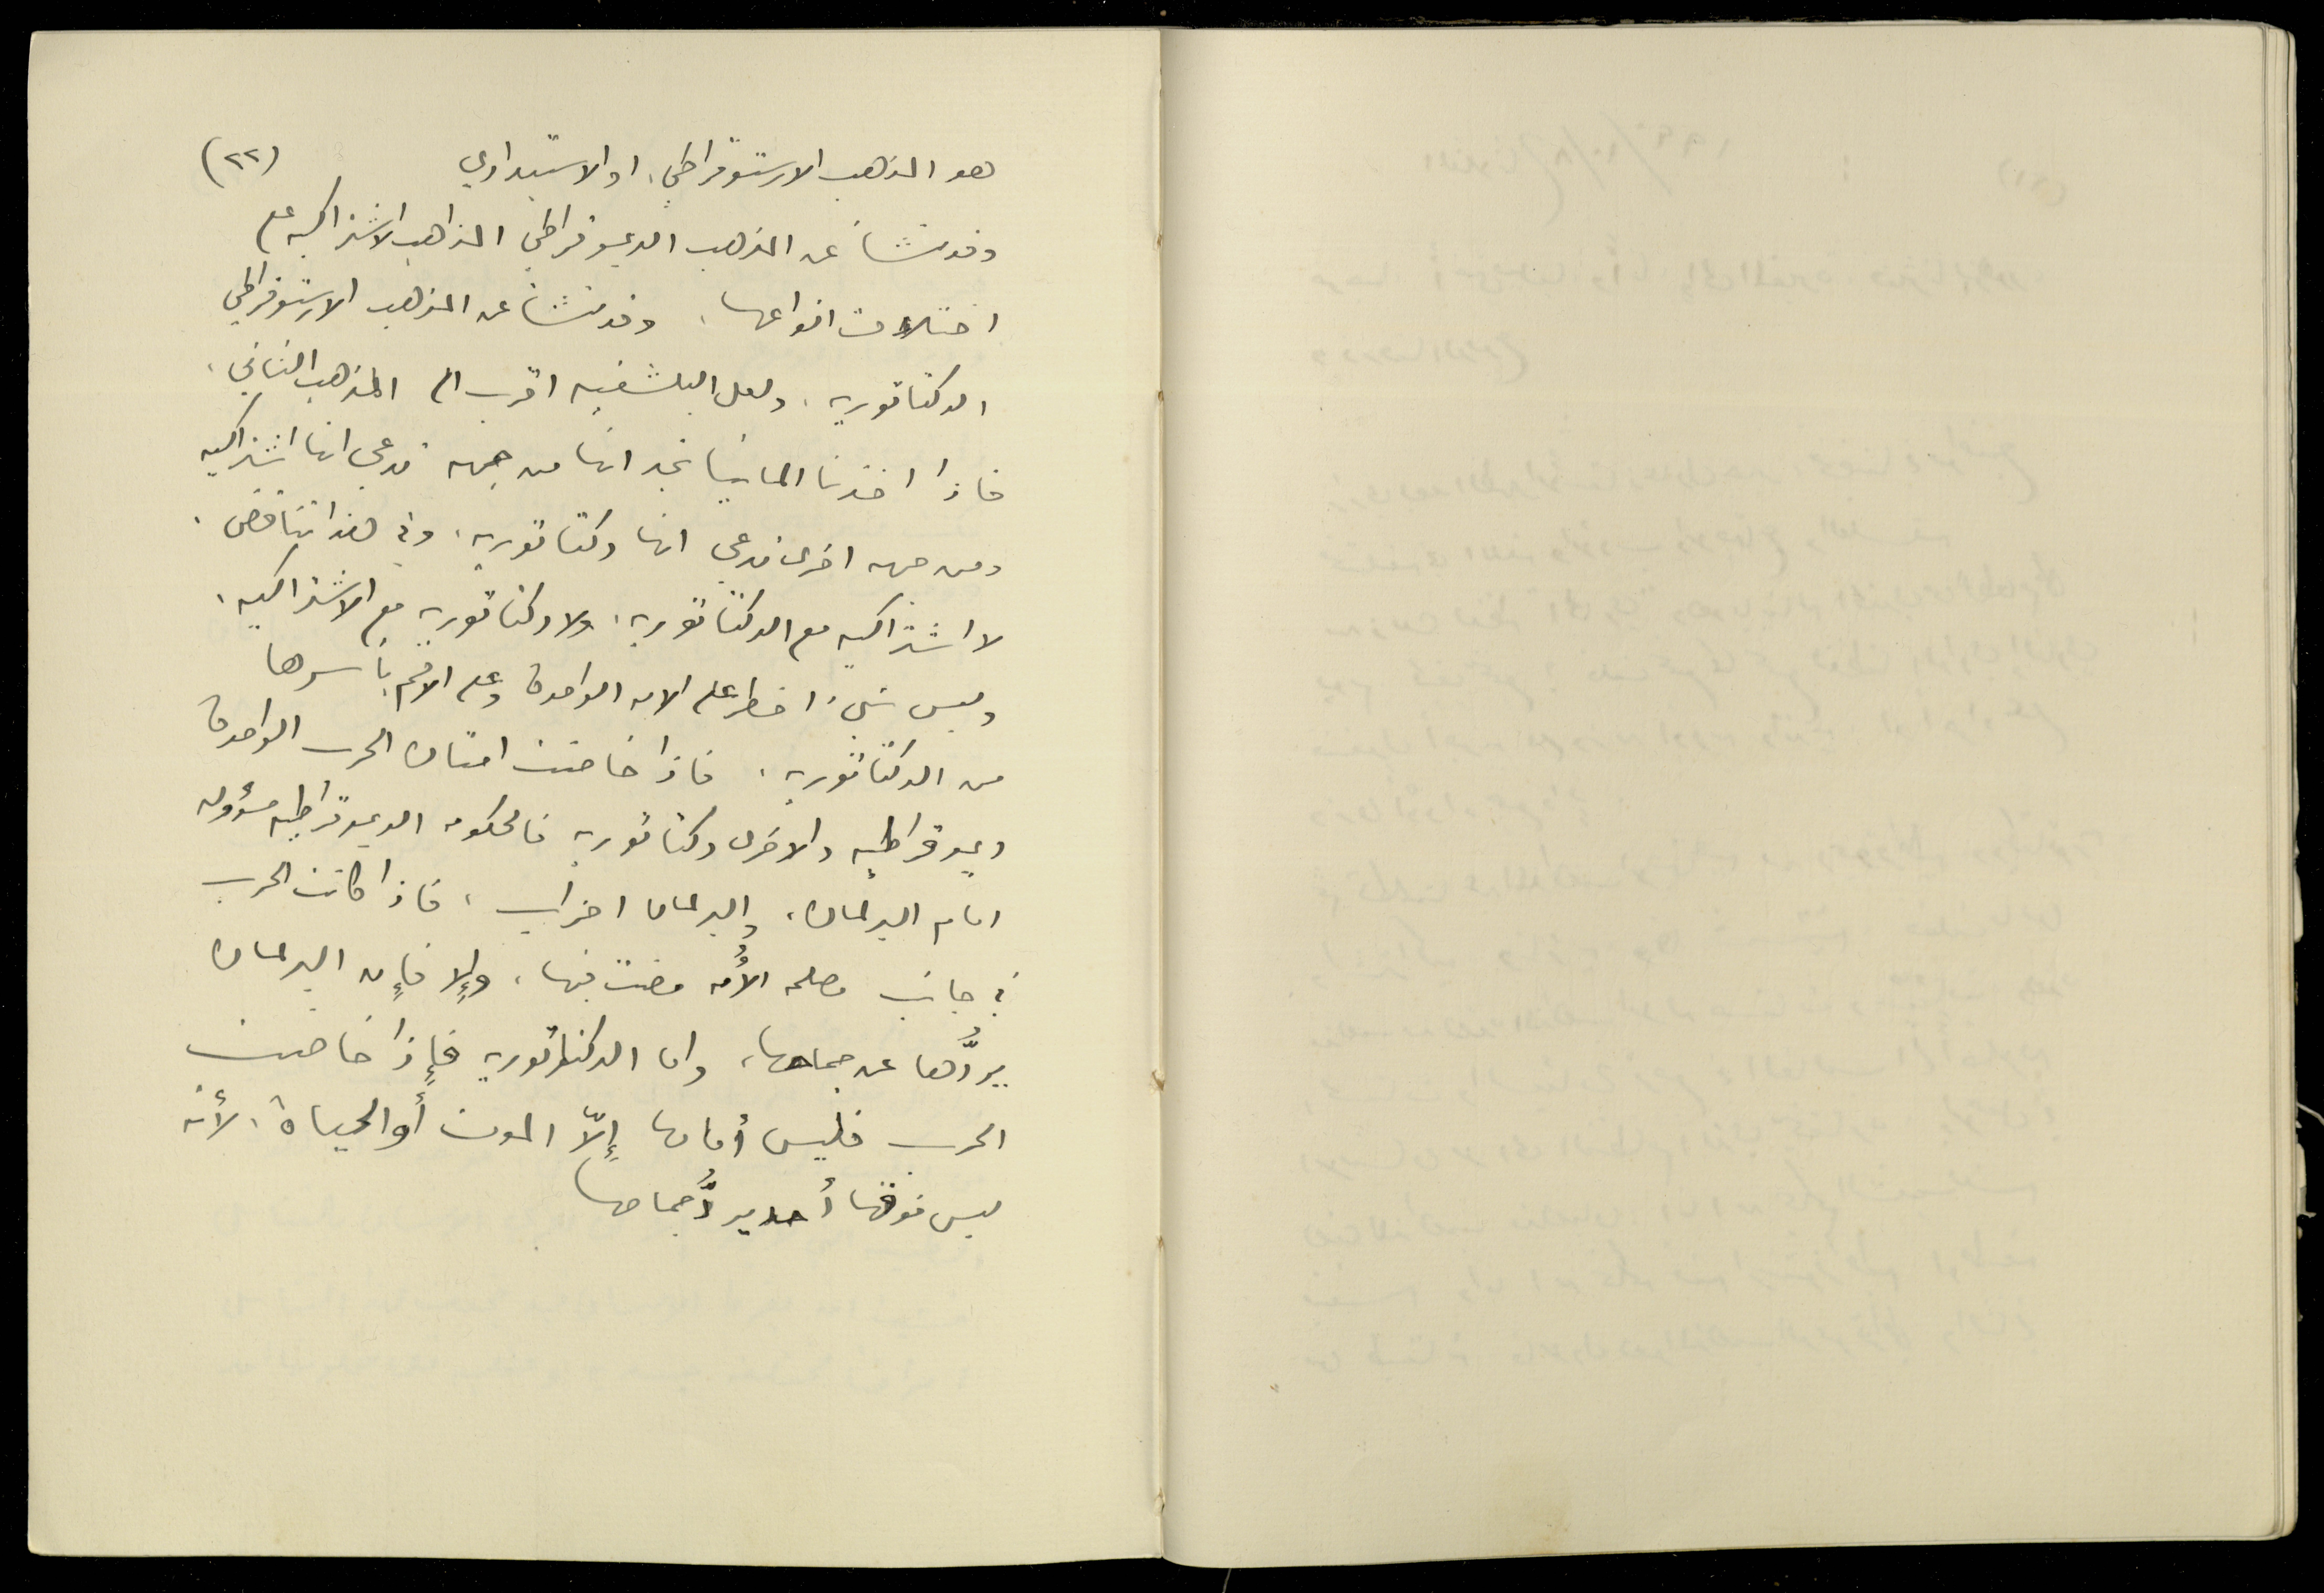 هو المذهب الارستوقراطي، او الاستبدادي (٢٢)
وقد نشأ عن المذهب الديموقراطي المذاهب الاشتراكيه على
اختلاف انواعها، وقد نشأ عن المذهب الارستوقراطي
الدكتاتوريه، ولعل البلشفيه اقرب الى المذهب الثاني.
فاذا اخذنا المانيا نجد انها من جهه تدعي انها اشتراكيه
ومن جهه اخرى تدعي انها دكتاتوريه، وفي هذا تناقض.
لا اشتراكيه مع الدكتاتوريه، ولا دكتاتوريه مع الاشتراكيه.
وليس شيء اخطر على الامه الواحدة وعلى الامم بأسرها
من الدكتاتوريه. فاذا خاضت امتان الحرب الواحدة
ديموقراطيه والاخرى دكتاتوريه فالحكومه الديموقراطيه مسؤوله
امام البرلمان، والبرلمان احزاب، فاذا كانت الحرب
في جانب مصلحه الأُمه مضت فيها، وإلا فإن البرلمان
يردُّها عن جماحها، واما الدكتاتوريه فإذا خاضت
الحرب فليس أمامها إلاّ الموت أو الحياة، لأنه
ليس فوقها أحد يردُّ جماحها